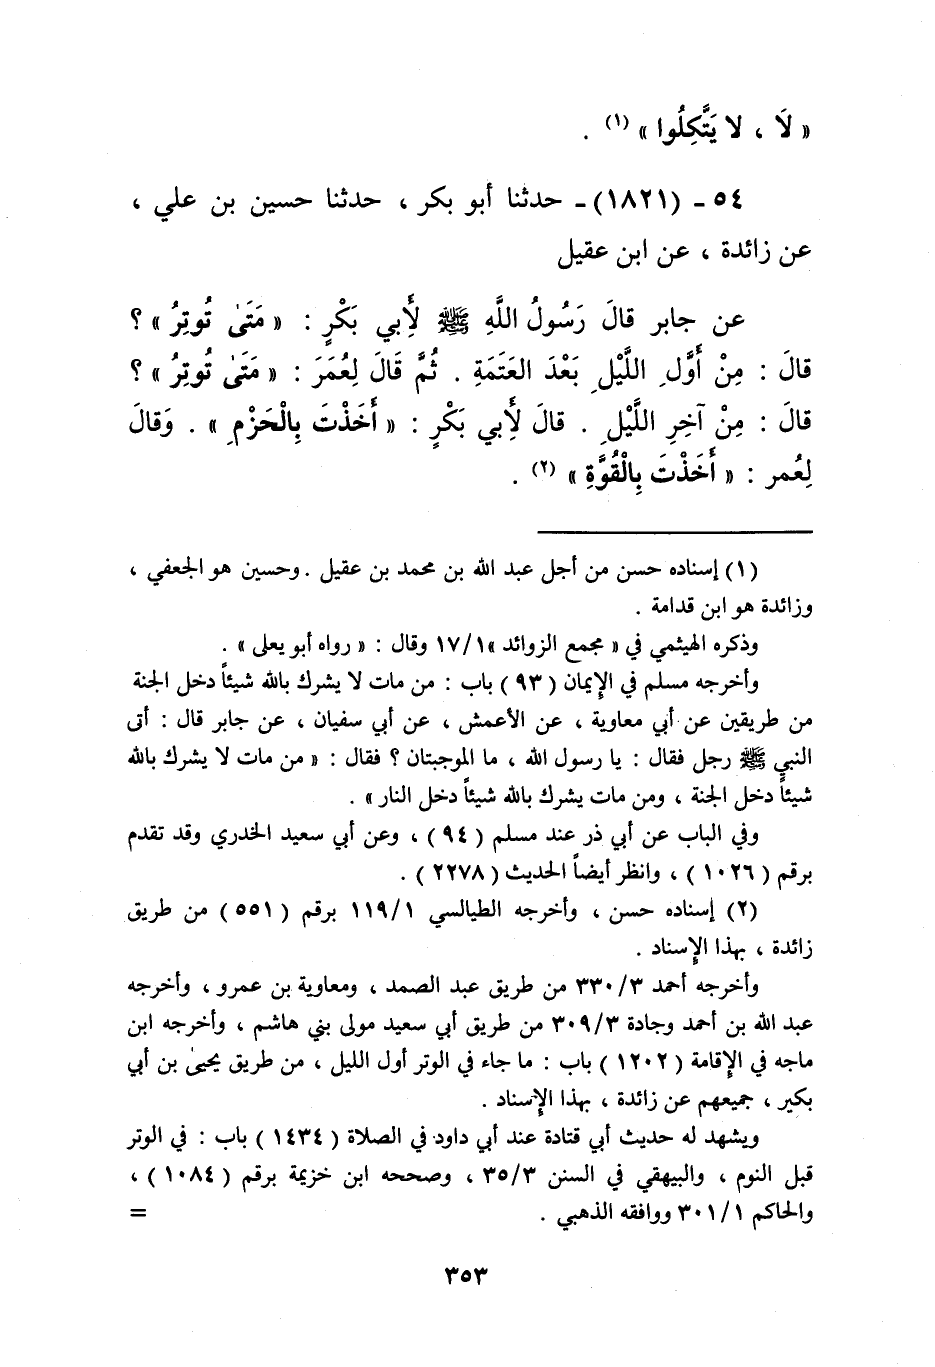 « لَا ، لا يَتَّكِلُوا » (١) .
٥٤ ـ (١٨٢١) ـ حدثنا أبو بكر ، حدثنا حسين بن علي ،
عن زائدة ، عن ابن عقيل
عن جابر قالَ رَسُولُ اللَّهِ ﷺ لِأَبي بَكْرٍ : « مَتَىٰ تُوتِرُ » ؟
قالَ : مِنْ أَوَّلِ اللَّيْلِ بَعْدَ العَتَمَةِ . ثُمَّ قَالَ لِعُمَرَ : « مَتَىٰ تُوتِرُ » ؟
قالَ : مِنْ آخِرِ اللَّيْلِ . قالَ لِأَبي بَكْرٍ : « أَخَذْتَ بِالْحَزْمِ » . وَقالَ
لِعُمر : « أَخَذْتَ بِالْقُوَّةِ » (٢) .
(١) إسناده حسن من أجل عبد الله بن محمد بن عقيل . وحسين هو الجعفي ،
وزائدة هو ابن قدامة .
وذكره الهيثمي في « مجمع الزوائد » ١٧/١ وقال : « رواه أبو يعلى » .
وأخرجه مسلم في الإيمان ( ٩٣ ) باب : من مات لا يشرك بالله شيئاً دخل الجنة
من طريقين عن أبي معاوية ، عن الأعمش ، عن أبي سفيان ، عن جابر قال : أتى
النبي ﷺ رجل فقال : يا رسول الله ، ما الموجبتان ؟ فقال : « من مات لا يشرك بالله
شيئاً دخل الجنة ، ومن مات يشرك بالله شيئاً دخل النار » .
وفي الباب عن أبي ذر عند مسلم ( ٩٤ ) ، وعن أبي سعيد الخدري وقد تقدم
برقم ( ١٠٢٦ ) ، وانظر أيضاً الحديث ( ٢٢٧٨ ) .
(٢) إسناده حسن ، وأخرجه الطيالسي ١١٩/١ برقم ( ٥٥١ ) من طريق
زائدة ، بهذا الإسناد .
وأخرجه أحمد ٣٣٠/٣ من طريق عبد الصمد ، ومعاوية بن عمرو ، وأخرجه
عبد الله بن أحمد وجادة ٣٠٩/٣ من طريق أبي سعيد مولى بني هاشم ، وأخرجه ابن
ماجه في الإقامة ( ١٢٠٢ ) باب : ما جاء في الوتر أول الليل ، من طريق يحيىٰ بن أبي
بكير ، جميعهم عن زائدة ، بهذا الإسناد .
ويشهد له حديث أبي قتادة عند أبي داود في الصلاة ( ١٤٣٤ ) باب : في الوتر
قبل النوم ، والبيهقي في السنن ٣٥/٣ ، وصححه ابن خزيمة برقم ( ١٠٨٤ ) ،
والحاكم ٣٠١/١ ووافقه الذهبي . =
٣٥٣